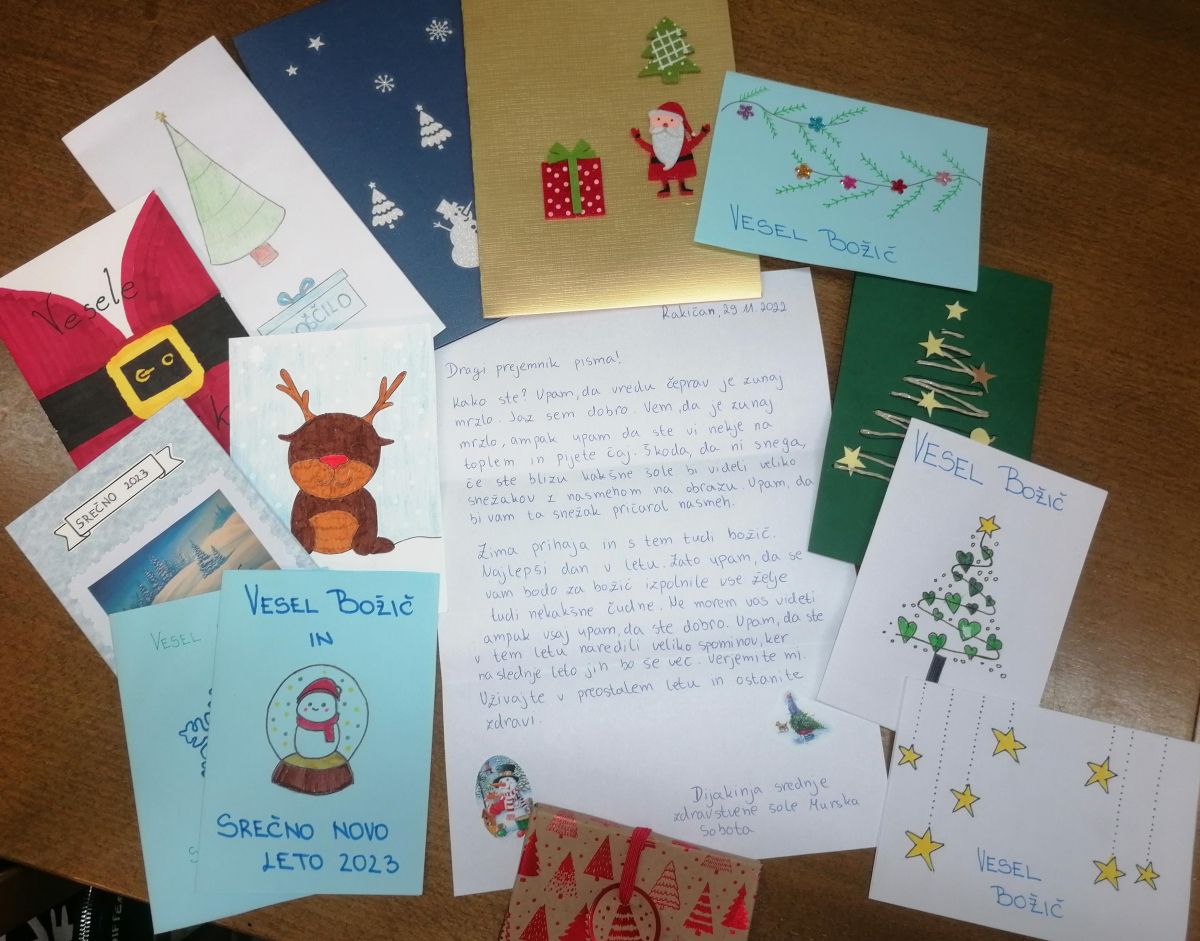 VESEL BOŽIČ
Vesele
VOŠČILO
SREČNO 2023
Rakičan, 29.11.2022
Dragi prejemnik pisma!
Kako ste? Upam, da vredu čeprav je zunaj
mrzlo. Jaz sem dobro. Vem, da je zunaj
mrzlo, ampak upam da ste vi nekje na
toplem in pijete čaj. Škoda, da ni snega,
če ste blizu kakšne šole bi videli veliko
snežakov z nasmehom na obrazu. Upam, da
bi vam ta snežak pričaral nasmeh.
Zima prihaja in s tem tudi božič.
Najlepši dan v letu. Zato upam, da se
vam bodo za božič izpolnile vse želje
tudi nekakšne čudne. Ne morem vas videti
ampak vsaj upam, da ste dobro. Upam, da ste
v tem letu naredili veliko spominov, ker
naslednje leto jih bo še več. Verjemite mi.
Uživajte v preostalem letu in ostanite
zdravi.
Dijakinja srednje
zdravstvene šole Murska
Sobota
VESEL BOŽIČ
VESEL
VESEL BOŽIČ
IN
SREČNO NOVO
LETO 2023
VESEL
BOŽIČ